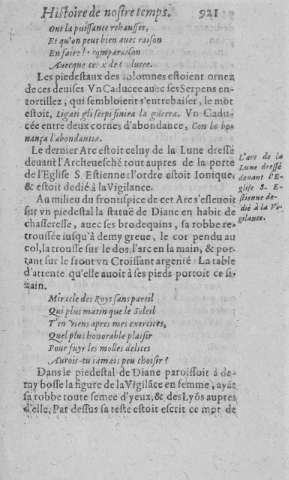 Histoire de nostre temps. 921
Ont la puissance rehausser,
Et qu'on peut bien auec raison
En faire la comparaison
Auecque ces x de l'oliuree.
Les piedestaux des colomnes estoient ornez
de ces deuises Vn Caducee auec ses Serpens en-
tortillez, qui sembloient s'entrebaiser, le mot
estoit, Ligati gli serpi finira la guerra. Vn Cadu-
cée entre deux cornes d'abondance, Con la bo-
nança l'abondante.
Le dernier Arc estoit celuy de la Lune dressé
deuant l'Archeuesché tout aupres de la porte
de l'Eglise S. Estienne: l'ordre estoit Ionique,
& estoit dedié à la Vigilance.
L'arc de la
Lune dressé
deuant l'E-
glise S. E-
stienne de-
dié à la Vi-
gilance.
Au milieu du frontispice de cet Arc s'esleuoit
sur vn piedestal la statuë de Diane en habit de
chasseresse, auec ses brodequins, sa robbe re-
troussée iusqu'à demy greue, le cor pendu au
col, la trousse sur le dos, l'arc en la main, & por-
tant sur le front vn Croissant argenté: La table
d'attente qu'elle auoit à ses pieds portoit ce si-
zain.
Miracle des Roys sans pareil
Qui plus matin que le Soleil
T'en viens apres mes exercites,
Quel plus honorable plaisir
Pour fuyr les molles delites
Aurois-tu iamais peu choisir?
Dans le piedestal de Diane paroissoit à de-
my bosse la figure de la Vigilāce en femme, ayāt
sa robbe toute semee d'yeux, & des Lyōs aupres
d'elle, Par dessus sa teste estoit escrit ce mot de